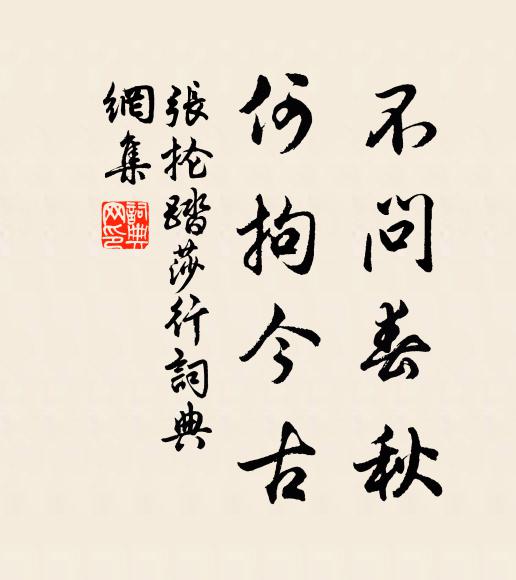 不問春秋
何拘今古
張抡踏莎行詞典
網集
詞典網印